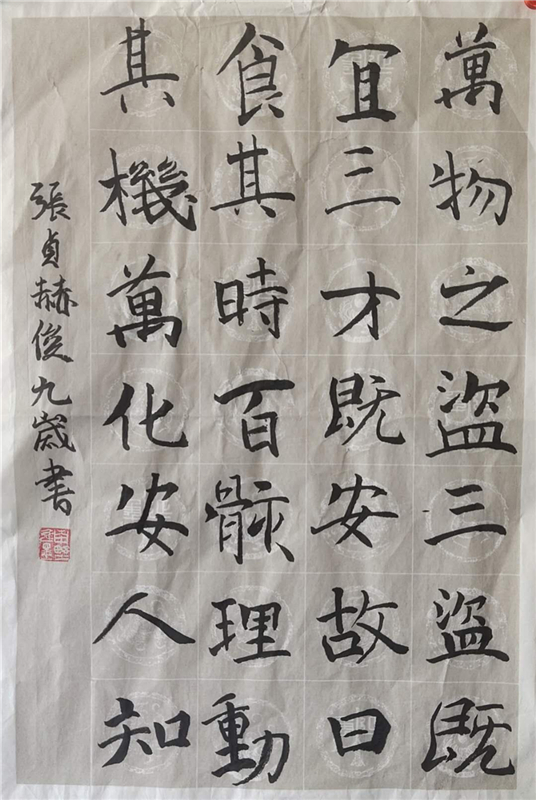 萬物之盜三盜既
宜三才既安故曰
食其時百骸理動
其機萬化安人知
張貞赫俊九歲書